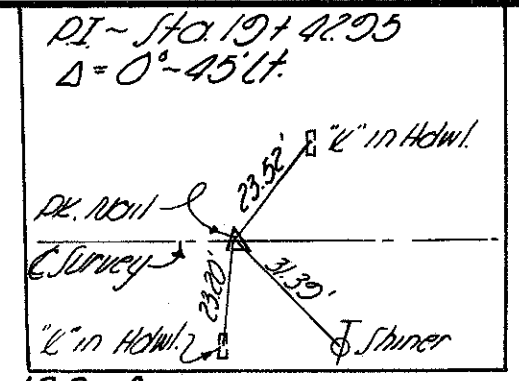 P.I. ~ Sta. 19+42.95
Δ = 0°-45' Lt.
"K" in Hdwl.
23.52'
P.K. Nail
℄ Survey
23.20'
31.39'
"K" in Hdwl.
Shiner